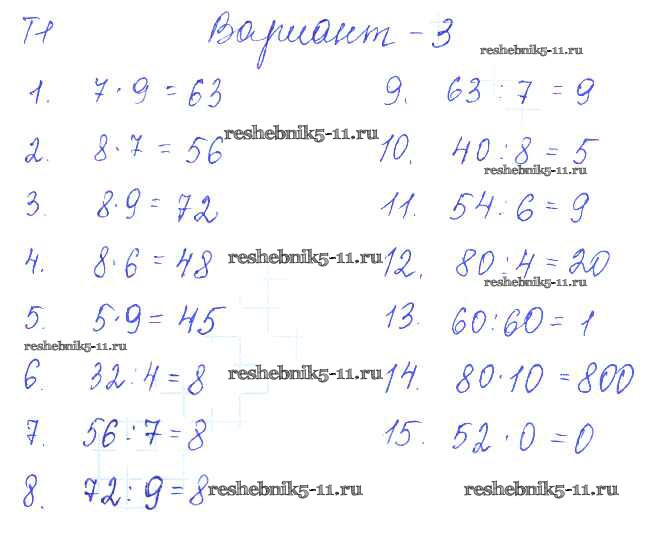 Т-1 Вариант - 3
reshebnik5-11.ru
1. 7 · 9 = 63
2. 8 · 7 = 56
reshebnik5-11.ru
3. 8 · 9 = 72
4. 8 · 6 = 48
reshebnik5-11.ru
5. 5 · 9 = 45
reshebnik5-11.ru
6. 32 : 4 = 8
reshebnik5-11.ru
7. 56 : 7 = 8
8. 72 : 9 = 8
reshebnik5-11.ru
9. 63 : 7 = 9
10. 40 : 8 = 5
reshebnik5-11.ru
11. 54 : 6 = 9
12. 80 : 4 = 20
reshebnik5-11.ru
13. 60 : 60 = 1
14. 80 · 10 = 800
15. 52 · 0 = 0
reshebnik5-11.ru